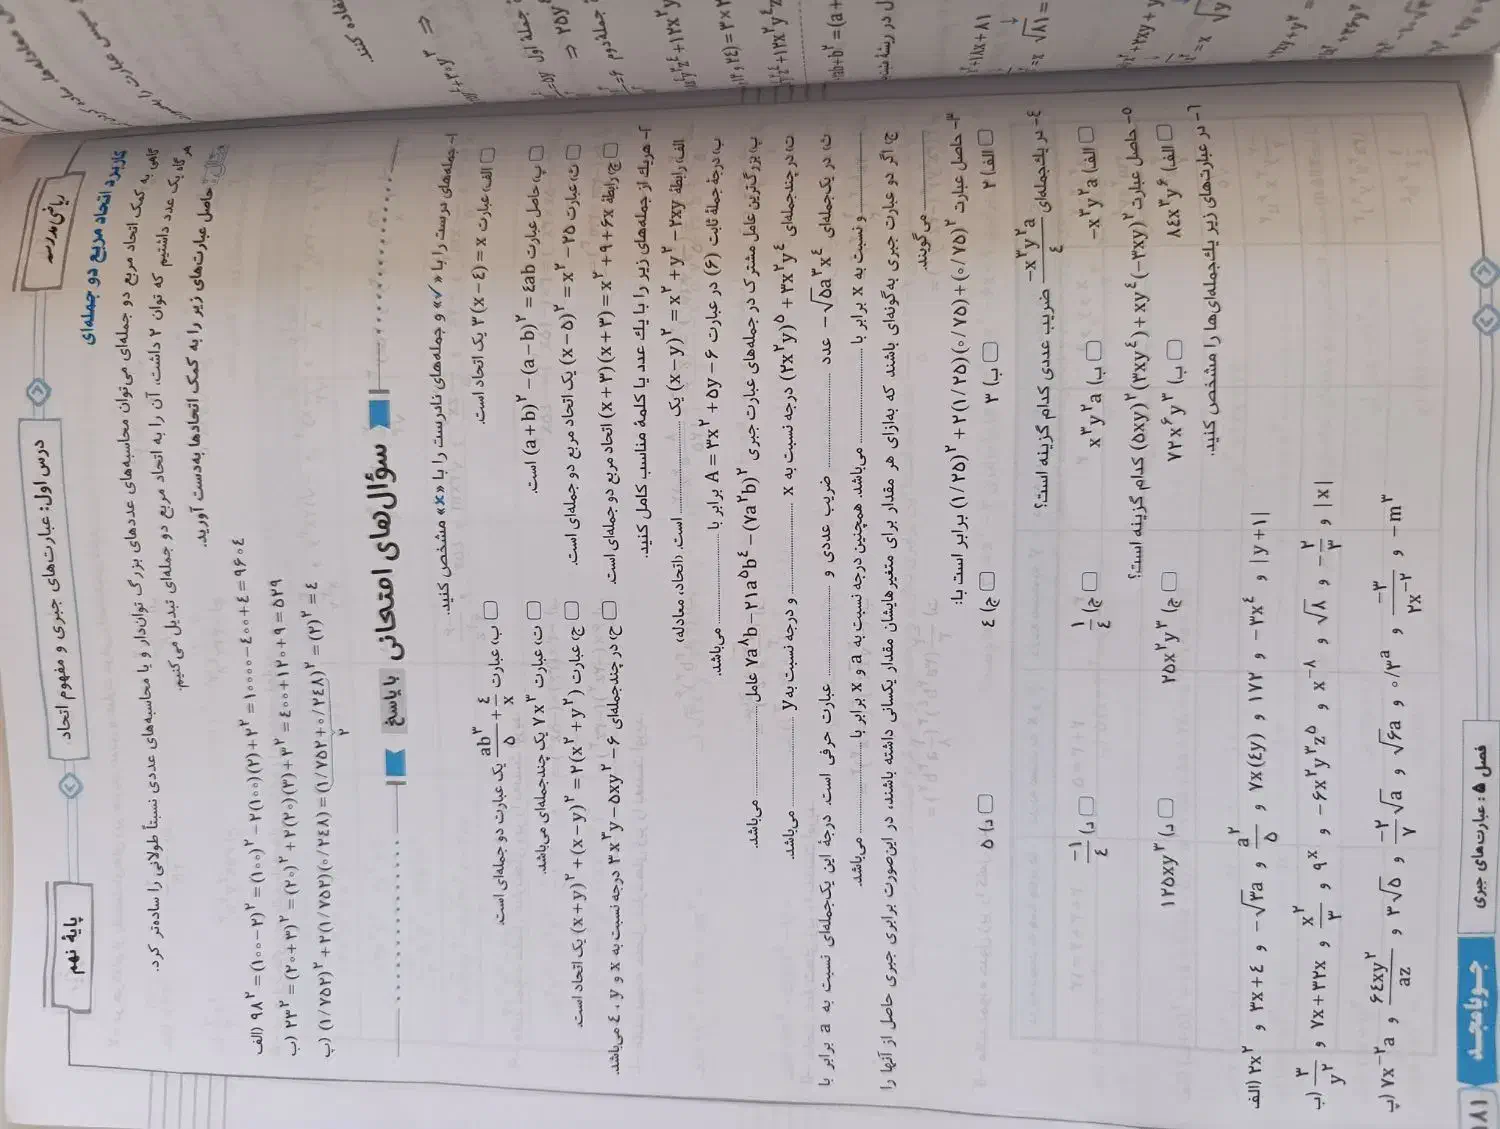 پایهٔ نهم
درس اول: عبارت‌های جبری و مفهوم اتحاد
ریاضی مدرسه
کاربرد اتحاد مربع دو جمله‌ای
گاهی به کمک اتحاد مربع دو جمله‌ای می‌توان محاسبه‌های عددهای بزرگ توان‌دار و یا محاسبه‌های عددی نسبتاً طولانی را ساده‌تر کرد.
هرگاه یک عدد داشتیم که توان ۲ داشت، آن را به اتحاد مربع دو جمله‌ای تبدیل می‌کنیم.
مثال: حاصل عبارت‌های زیر را به کمک اتحادها به‌دست آورید.
الف) ۹۸^۲ = (۱۰۰-۲)^۲ = (۱۰۰)^۲ - ۲(۱۰۰)(۲) + ۲^۲ = ۱۰۰۰۰ - ۴۰۰ + ۴ = ۹۶۰۴
ب) ۲۳^۲ = (۲۰+۳)^۲ = (۲۰)^۲ + ۲(۲۰)(۳) + ۳^۲ = ۴۰۰ + ۱۲۰ + ۹ = ۵۲۹
پ) (۱/۷۵۲)^۲ + ۲(۱/۷۵۲)(۰/۲۴۸) = (۱/۷۵۲ + ۰/۲۴۸)^۲ = (۲)^۲ = ۴
۲
سؤال‌های امتحانی با پاسخ
۱- جمله‌های درست را با «✓» و جمله‌های نادرست را با «×» مشخص کنید.
الف) عبارت ۳(x-۴) = x یک اتحاد است.
ب) عبارت ab^۳/۵ + ۴/x یک عبارت دو جمله‌ای است.
پ) حاصل عبارت (a+b)^۲ - (a-b)^۲ = ۴ab است.
ت) عبارت ۷x^۳ یک چندجمله‌ای می‌باشد.
ث) عبارت (x-۵)^۲ = x^۲ - ۲۵ یک اتحاد مربع دو جمله‌ای است.
ج) عبارت (x+y)^۲ + (x-y)^۲ = ۲(x^۲+y^۲) یک اتحاد است.
چ) رابطهٔ (x+۳)(x+۳) = x^۲ + ۹ + ۶x اتحاد مربع دو جمله‌ای است.
ح) در چندجمله‌ای ۳x^۳y - ۵xy^۲ - ۶ درجه نسبت به x و y، ۴ می‌باشد.
۲- هریک از جمله‌های زیر را با یک عدد یا کلمهٔ مناسب کامل کنید.
الف) رابطهٔ (x-y)^۲ = x^۲ + y^۲ - ۲xy یک .......... است. (اتحاد، معادله)
ب) درجهٔ جملهٔ ثابت (۶) در عبارت A = ۳x^۲ + ۵y - ۶ برابر با .......... می‌باشد.
پ) بزرگ‌ترین عامل مشترک در جمله‌های عبارت جبری ۷a^۸b - ۲۱a^۵b^۴ - (۷a^۲b)^۲ عامل .......... می‌باشد.
ت) در چندجمله‌ای (۲x^۲y)^۵ + ۳x^۲y^۴ درجه نسبت به x .......... و درجه نسبت به y .......... می‌باشد.
ث) در یک‌جمله‌ای -√۵a^۳x^۴ عدد .......... ضریب عددی و .......... عبارت حرفی است. درجهٔ این یک‌جمله‌ای نسبت به a برابر با
.......... و نسبت به x برابر با .......... می‌باشد. همچنین درجه نسبت به a و x برابر با .......... می‌باشد.
ج) اگر دو عبارت جبری به‌گونه‌ای باشند که به‌ازای هر مقدار برای متغیرهایشان مقدار یکسانی داشته باشند، در این‌صورت برابری جبری حاصل از آنها را
.......... می‌گویند.
۳- حاصل عبارت (۱/۲۵)^۲ + ۲(۱/۲۵)(۰/۷۵) + (۰/۷۵)^۲ برابر است با:
الف) ۲
ب) ۳
ج) ۴
د) ۵
۴- در یک‌جمله‌ای -x^۳y^۲a/۴ ضریب عددی کدام گزینه است؟
الف) -x^۳y^۲a
ب) x^۳y^۲a
ج) ۱/۴
د) -۱/۴
۵- حاصل عبارت (۵xy)^۲(۳xy^۴) + xy^۴(-۳xy)^۲ کدام گزینه است؟
الف) ۸۴x^۳y^۶
ب) ۷۲x^۶y^۳
ج) ۲۵x^۲y^۳
د) ۱۲۵xy^۳
۶- در عبارت‌های زیر یک‌جمله‌ای‌ها را مشخص کنید.
الف) ۲x^۲ و ۳x+۴ و -√۳a و a^۲/۵ و ۷x(۴y) و ۱۷۲ و -۳x^۴ و |y+۱|
ب) ۳/y^۲ و ۷x+۳۲x و x^۲/۳ و ۹^x و -۶x^۲y^۳z^۵ و x^-۸ و √۸ و -۲/۳ و |x|
پ) ۷x^-۲a و ۶۴xy^۲/az و ۳√۵ و -۲/۷√a و √۶a و ۰/۳^a و -۳/۲x^-۲ و -m^۳
فصل ۵: عبارت‌های جبری
جویامجد